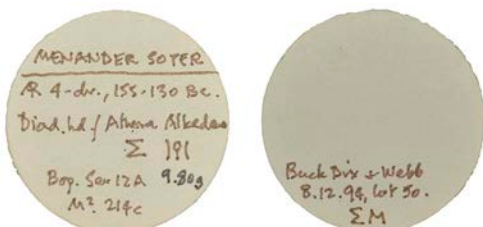 MENANDER SOTER
AR 4-dr., 155-130 BC.
Diad. hd / Athena Alkedem
Σ |9|
Bop. Ser 12A 9.80g
M². 214c
Buck Dix & Webb
8.12.94, lot 50.
ΣM